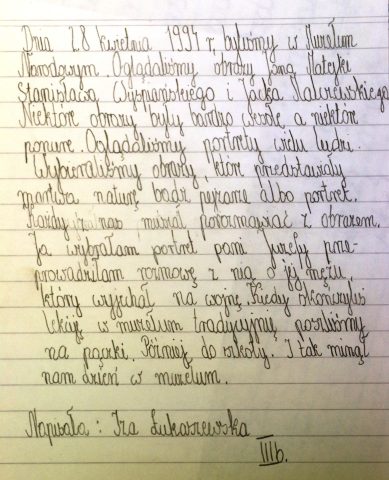 Dnia 28 kwietnia 1994 r. byliśmy w Muzeum
Narodowym. Oglądaliśmy obrazy Jana Matejki
Stanisława Wyspiańskiego i Jacka Malczewskiego.
Niektóre obrazy były bardzo wesołe a niektóre
ponure. Oglądaliśmy portrety wielu ludzi.
Wybieraliśmy obrazy, które przedstawiały
martwą naturę bądź pejzaże albo portret.
Każdy z nas musiał porozmawiać z obrazem.
Ja wybrałam portret pani Józefy prze-
prowadziłam rozmowę z nią o jej mężu,
który wyjechał na wojnę. Kiedy skończyliś
lekcję w muzeum tradycyjnie poszliśmy
na pączki. Później do szkoły. I tak minął
nam dzień w muzeum.
Napisała: Iza Łukaszewska
IIIb.